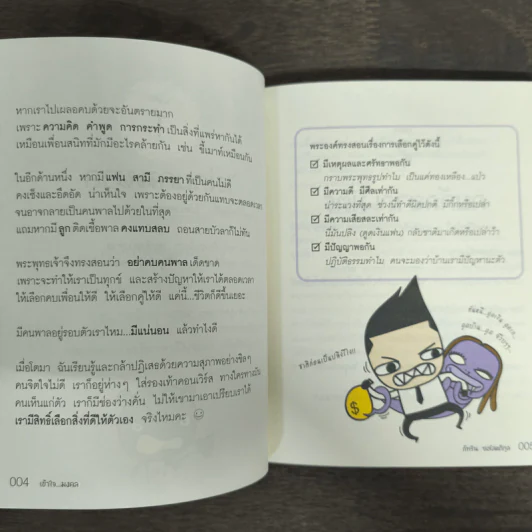 หากเราไปเผลอคบด้วยจะอันตรายมาก
เพราะ ความคิด คำพูด การกระทำ เป็นสิ่งที่แพร่หากันได้
เหมือนเพื่อนสนิทที่มักมีอะไรคล้ายกัน เช่น ขี้เมาท์เหมือนกัน
ในอีกด้านหนึ่ง หากมี แฟน สามี ภรรยา ที่เป็นคนไม่ดี
คงเซ็งและอึดอัด น่าเห็นใจ เพราะต้องอยู่ด้วยกันแทบจะตลอดเวลา
จนอาจกลายเป็นคนพาลไปด้วยในที่สุด
แถมหากมี ลูก ติดเชื้อพาล คงแทบสลบ ถอนสายบัวลาก็ไม่ทัน
พระพุทธเจ้าจึงทรงสอนว่า อย่าคบคนพาล เด็ดขาด
เพราะจะทำให้เราเป็นทุกข์ และสร้างปัญหาให้เราได้ตลอดเวลา
ให้เลือกคบเพื่อนให้ดี ให้เลือกคู่ให้ดี แค่นี้...ชีวิตก็ดีขึ้นเยอะ
มีคนพาลอยู่รอบตัวเราไหม... มีแน่นอน แล้วทำไงดี
เมื่อโตมา ฉันเรียนรู้และกล้าปฏิเสธด้วยความสุภาพอย่างชิดๆ
คนจิตใจไม่ดี เราก็อยู่ห่างๆ ใส่รองเท้าคอนเวิร์ส ทางใครทางมัน
คนเห็นแก่ตัว เราก็มีช่องว่างคั่น ไม่ให้เขามาเอาเปรียบเราได้
เรามีสิทธิ์เลือกสิ่งที่ดีให้ตัวเอง จริงไหมคะ ☺
004 เข้าใจ...มงคล
พระองค์ทรงสอนเรื่องการเลือกคู่ไว้ดังนี้
☑ มีเหตุผลและศรัทธาพอกัน
กราบพระพุทธรูปทำไม เป็นแค่ทองเหลือง...แปว
☑ มีความดี มีศีลเท่ากัน
น่าระแวงที่สุด ช่วงนี้ทำดีผิดปกติ มีกิ๊กหรือเปล่า
☑ มีความเสียสละเท่ากัน
นี่มันปลิง (ดูดเงินแฟน) กลับชาติมาเกิดหรือเปล่าว้า
☑ มีปัญญาพอกัน
ปฏิบัติธรรมทำไม คนจะมองว่าบ้านเรามีปัญหานะตัว
$
005